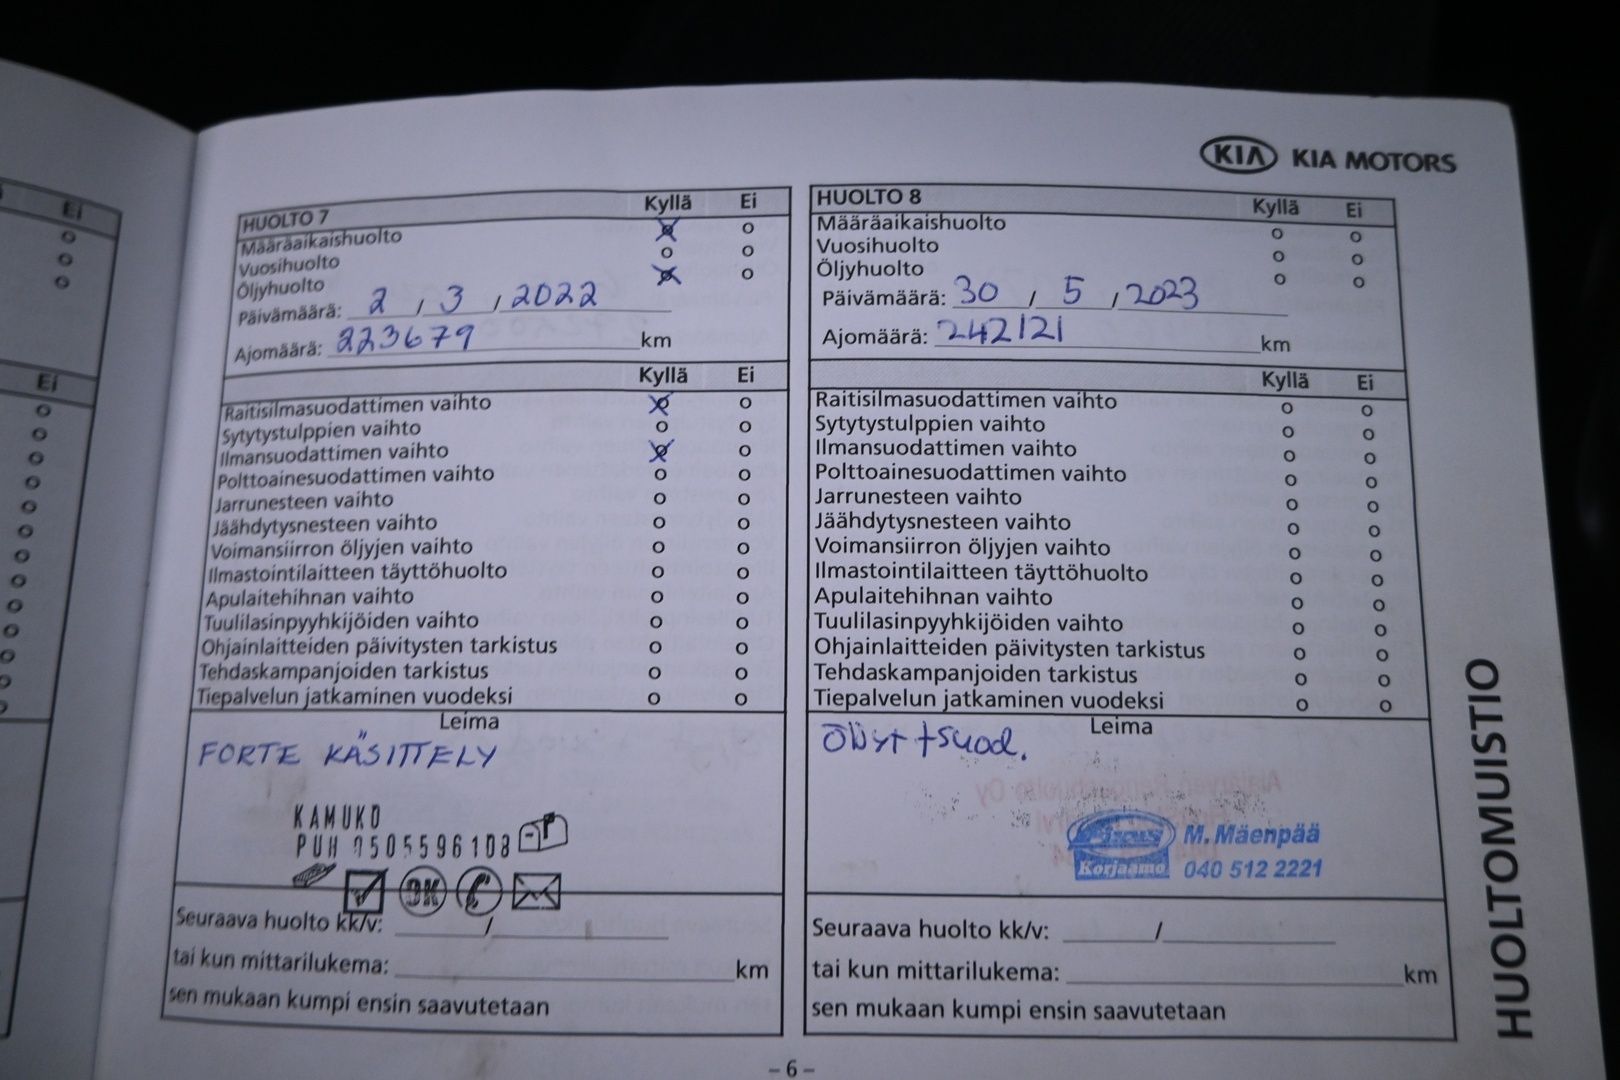 KIA KIA MOTORS
Ei
Ei
HUOLTO 7 Kyllä Ei
Määräaikaishuolto o o
Vuosihuolto o o
Öljyhuolto o o
Päivämäärä: 2 / 3 / 2022
Ajomäärä: 223679 km
Kyllä Ei
Raitisilmasuodattimen vaihto o o
Sytytystulppien vaihto o o
Ilmansuodattimen vaihto o o
Polttoainesuodattimen vaihto o o
Jarrunesteen vaihto o o
Jäähdytysnesteen vaihto o o
Voimansiirron öljyjen vaihto o o
Ilmastointilaitteen täyttöhuolto o o
Apulaitehihnan vaihto o o
Tuulilasinpyyhkijöiden vaihto o o
Ohjainlaitteiden päivitysten tarkistus o o
Tehdaskampanjoiden tarkistus o o
Tiepalvelun jatkaminen vuodeksi o o
Leima
FORTE KÄSITTELY
KAMUKO
PUH 0505596108
OK
Seuraava huolto kk/v: /
tai kun mittarilukema: km
sen mukaan kumpi ensin saavutetaan
HUOLTO 8 Kyllä Ei
Määräaikaishuolto o o
Vuosihuolto o o
Öljyhuolto o o
Päivämäärä: 30 / 5 / 2023
Ajomäärä: 242121 km
Kyllä Ei
Raitisilmasuodattimen vaihto o o
Sytytystulppien vaihto o o
Ilmansuodattimen vaihto o o
Polttoainesuodattimen vaihto o o
Jarrunesteen vaihto o o
Jäähdytysnesteen vaihto o o
Voimansiirron öljyjen vaihto o o
Ilmastointilaitteen täyttöhuolto o o
Apulaitehihnan vaihto o o
Tuulilasinpyyhkijöiden vaihto o o
Ohjainlaitteiden päivitysten tarkistus o o
Tehdaskampanjoiden tarkistus o o
Tiepalvelun jatkaminen vuodeksi o o
Leima
+suod.
M. Mäenpää
Korjaamo 040 512 2221
Seuraava huolto kk/v: /
tai kun mittarilukema: km
sen mukaan kumpi ensin saavutetaan
HUOLTOMUISTIO
– 6 –